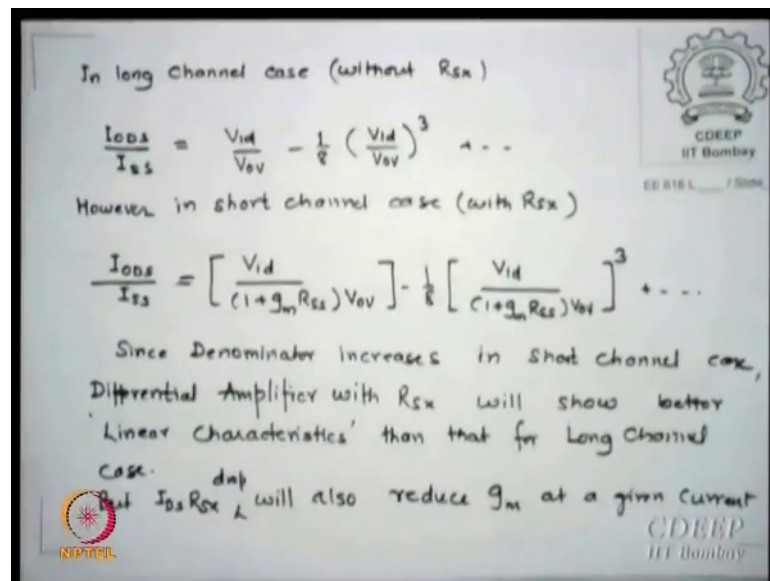 In long channel case (without Rsx)
I_ODS / I_SS = Vid / Vov - 1/8 (Vid / Vov)^3 + --
However in short channel case (with Rsx)
I_ODS / I_SS = [Vid / (1+gm Rss) Vov] - 1/8 [Vid / (1+gm Rss) Vov]^3 + ---
Since Denominator increases in short channel case,
Differential Amplifier with Rsx will show better
'Linear Characteristics' than that for Long Channel
case.
But I_DS Rsx drop will also reduce gm at a given current
CDEEP
IIT Bombay
EE 618 L / Slide
NPTEL
CDEEP
IIT Bombay